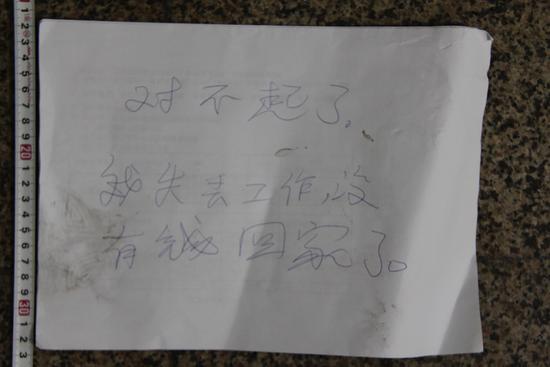 对不起了。
我失去工作没
有钱回家了。
1
2
3
4
5
6
7
8
9
20
1
2
3
4
5
6
7
8
9
30
1
2
3